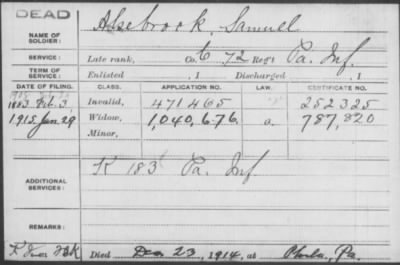 DEAD
NAME OF SOLDIER: Alsebrook, Samuel
SERVICE: Late rank, Co. C 72 Reg't Pa. Inf.
TERM OF SERVICE: Enlisted , 1 Discharged , 1
DATE OF FILING. CLASS. APPLICATION NO. LAW. CERTIFICATE NO.
1883 Feb. 3, Invalid, 471465 252325
1915 Jan. 29 Widow, 1,040,676 a. 787,820
Minor,
ADDITIONAL SERVICES: K 183 Pa. Inf.
REMARKS:
Died Dec. 23, 1914, at Phila., Pa.